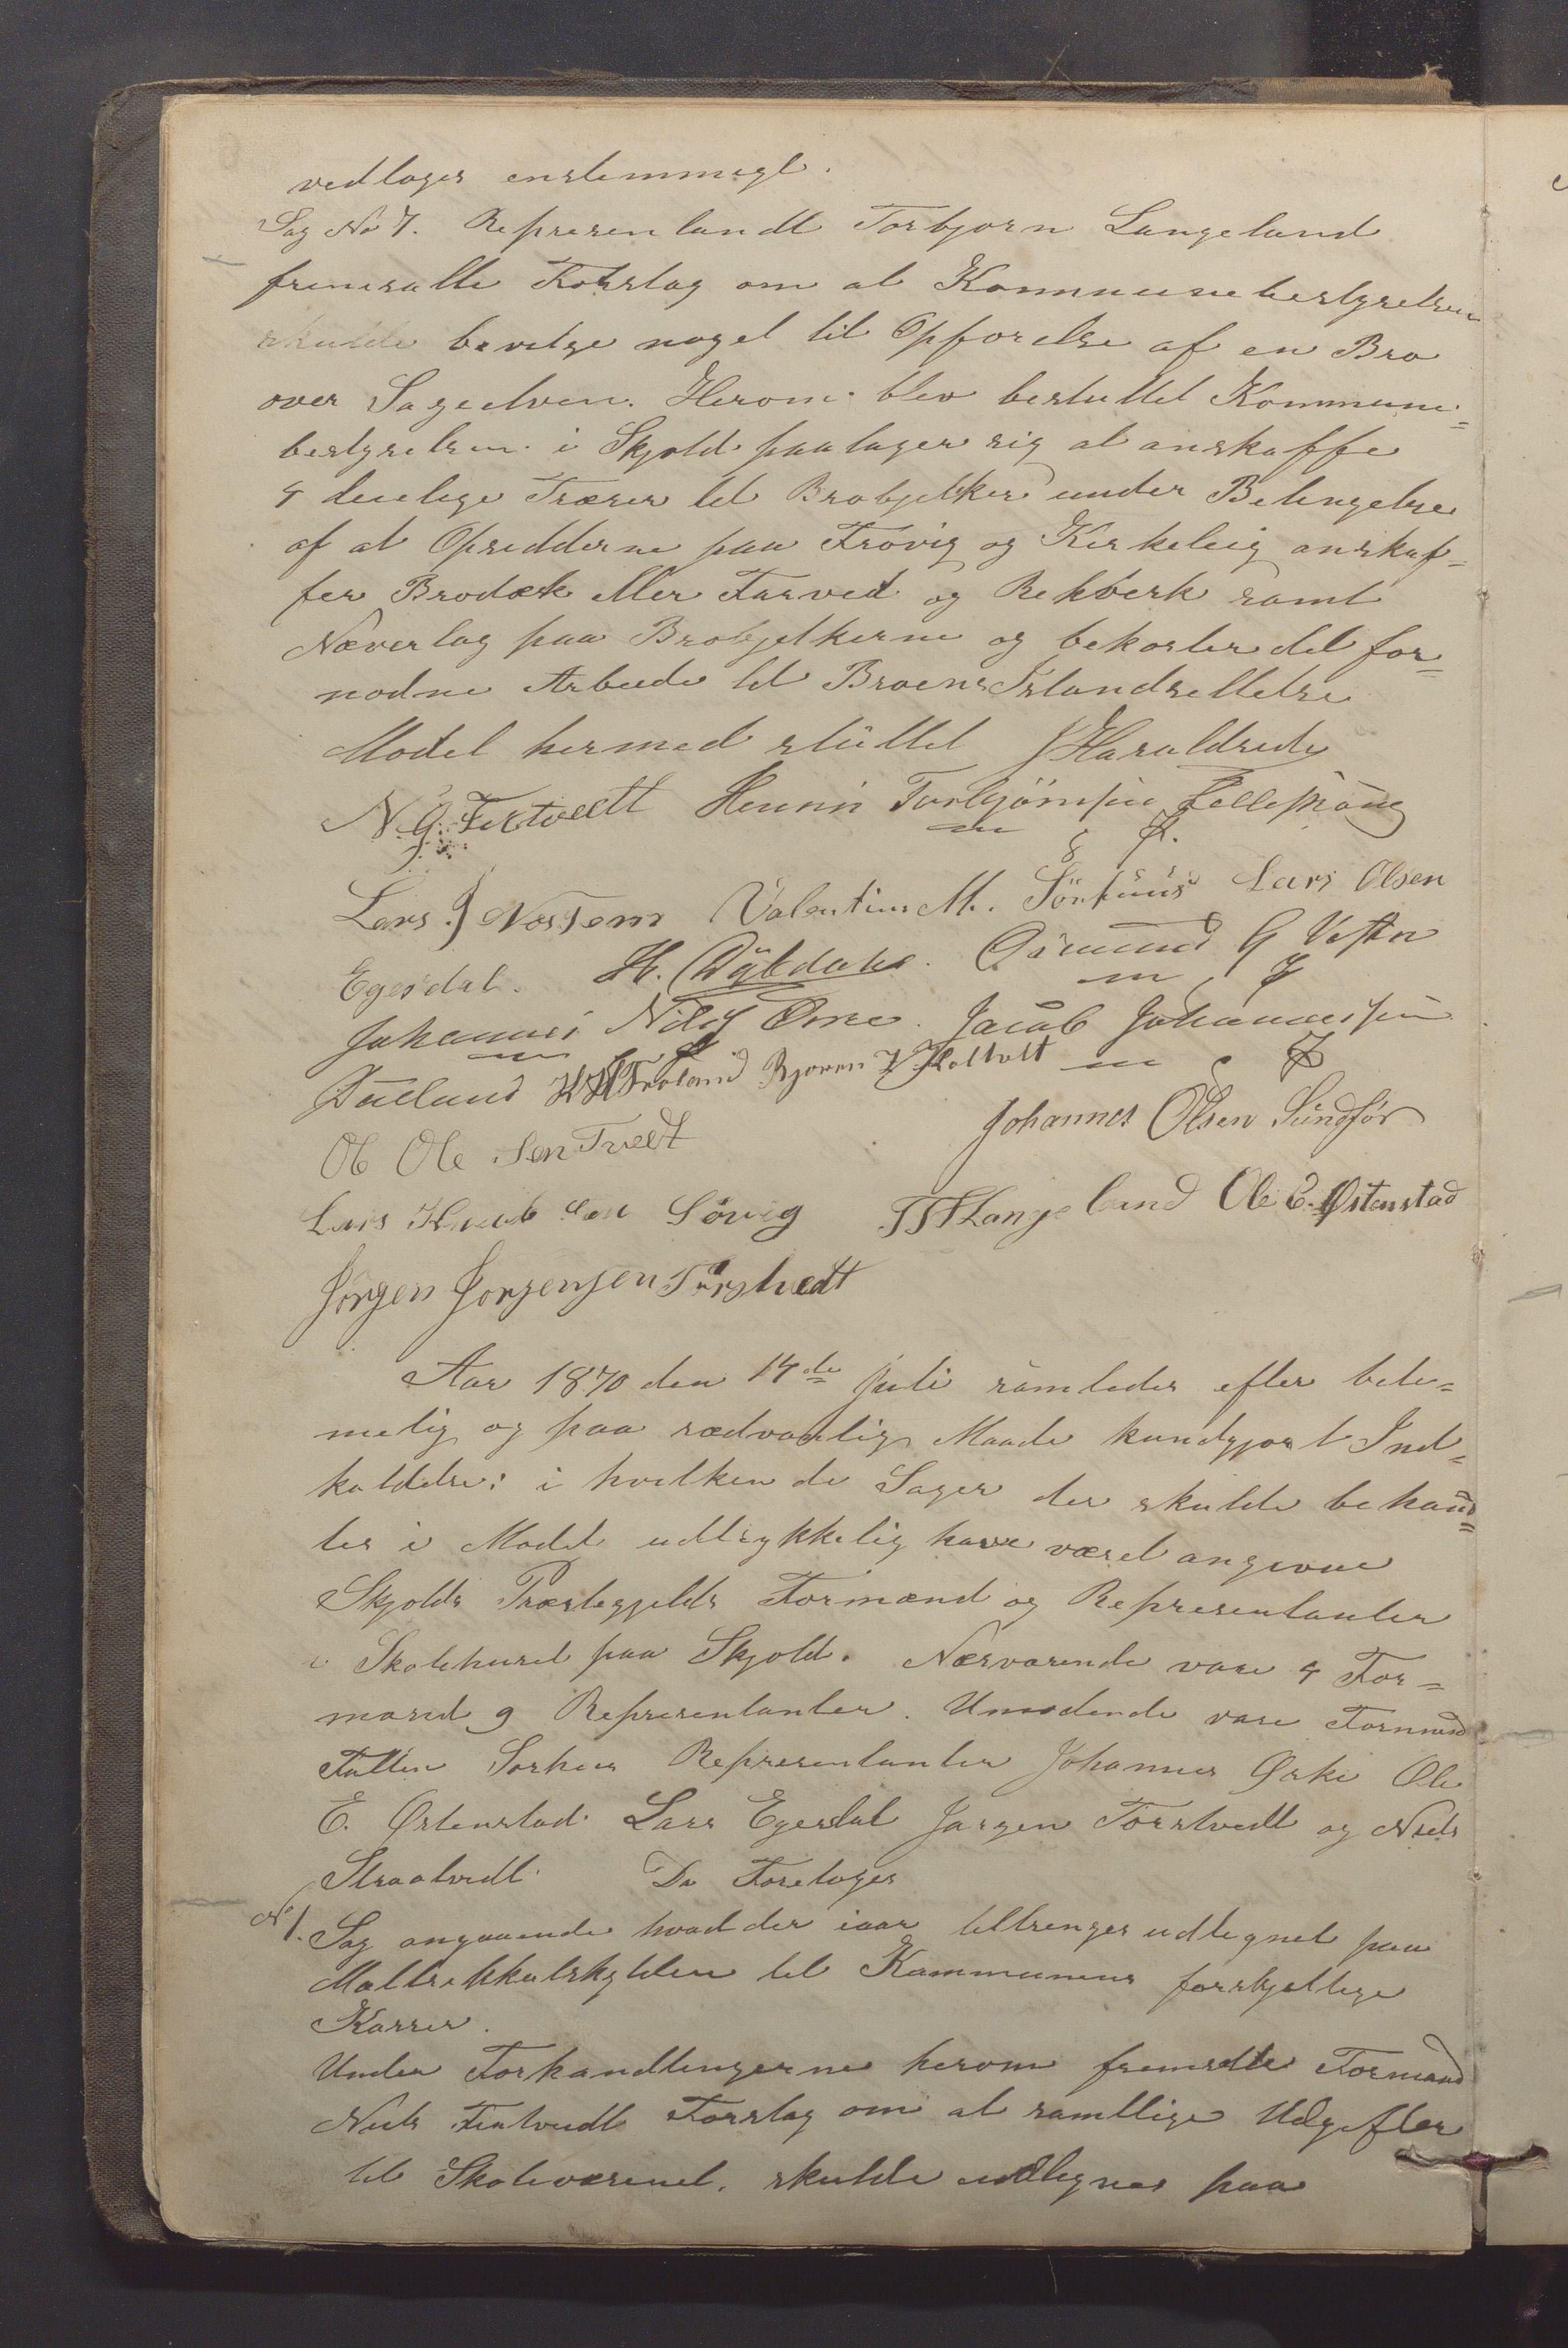 vedtoges enstemmigt.
Sag No 7. Representandt Torbjorn Langeland
fremsatte Forslag om at Kommunebestyrelsen
skulde bevilge noget til Opforelse af en Bro
over Sagedven. Herom blev besluttet Kommune=
bestyrelsen i Skjold paatager sig at anskaffe
4 duelige Træer til Brobjelker under Betingelse
af at Opsidderne paa Frovig og Kirkeleig anskaf-
fer Brodæk eller Farved og Rekverk samt
Næverlag paa Brobjelkerne og bekoster det for=
nødne Arbeide til Broens Istandsettelse
Mødet hermed sluttet J Haraldseide
N. G. Fextvedt Henrik Torbjørnsen
m f P.
Lars J Næssem Valentin M. Sørhuus Lars Olsen
Egesdal. H. Dybdahl. Osmund G
m f P
Johannes Nilss Ørke. Jacob Johannessen
m f P
Dueland H H Frøland Bjoren J Holtvet m f P
Johannes Olsen Sundfør
Ol Ole sen Tvedt
Lars Knud sen Sørvig T T Langeland Ole E. Østenstad
Jørgen Jørgensen Tørstvedt
Aar 1870 den 14de Juli samledes efter bete=
melig og paa sædvanlig Maade kundgjort Ind=
kaldelse: i hvilken de Sager der skulde behand=
les i Mødet udtrykkelig have været angivne
Skjolds Præstegjelds Formænd og Representanter
i Skolehuset paa Skjold. Nærværende vare 4 For=
mænd 9 Representanter. Umødende vare Formænd
Sørhuus Representanter Johannes Ørke Ole
E. Østenstad Lars Egesdal Jørgen Tørstvedt og Niels
Straatvedt. Da Foretoges
No 1. Sag angaaende hvad der iaar tiltrenges udlignet paa
Mattrikkulskylden til Kommunens forskjellige
Kasser.
Under Forhandlingerne herom fremsatte Formand
Niels Fextvedt Forslag om at samtlige Udgifter
til Skolevæsenet. skulde udlignes paa